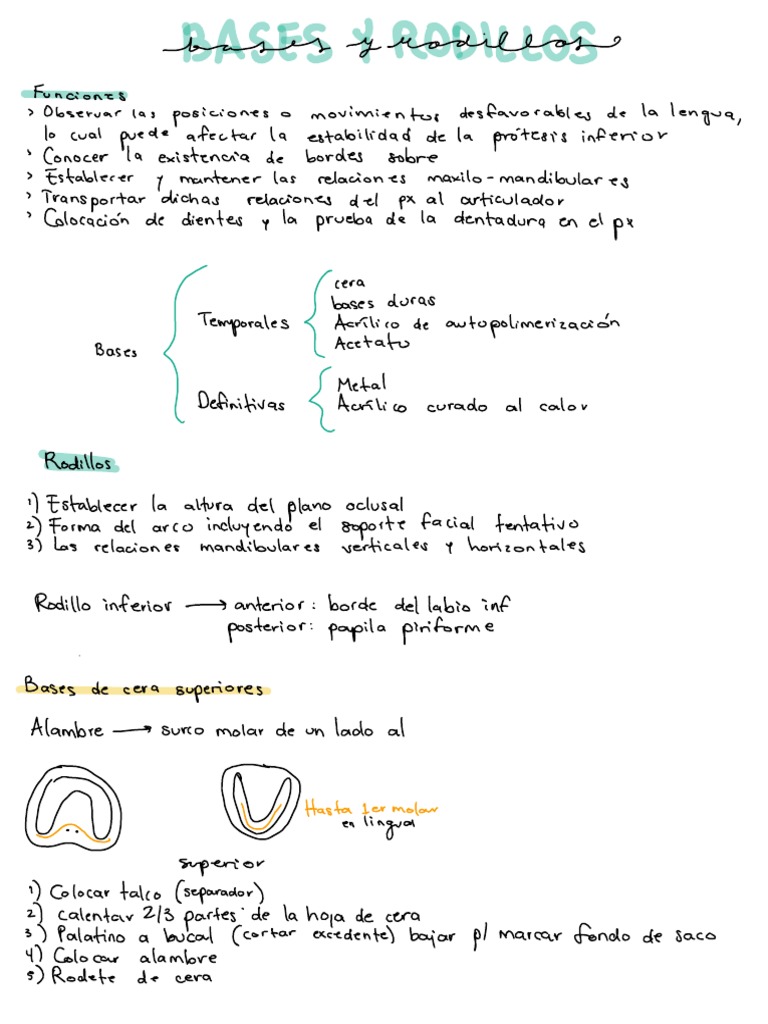 BASES Y RODILLOS
bases y rodillos
Funciones
> Observar las posiciones o movimientos desfavorables de la lengua,
lo cual puede afectar la estabilidad de la prótesis inferior
> Conocer la existencia de bordes sobre
> Establecer y mantener las relaciones maxilo-mandibulares
> Transportar dichas relaciones del px al articulador
> Colocación de dientes y la prueba de la dentadura en el px
Bases
Temporales
cera
bases duras
Acrílico de autopolimerización
Acetato
Definitivas
Metal
Acrílico curado al calor
Rodillos
1) Establecer la altura del plano oclusal
2) Forma del arco incluyendo el soporte facial tentativo
3) Las relaciones mandibulares verticales y horizontales
Rodillo inferior → anterior: borde del labio inf
posterior: papila piriforme
Bases de cera superiores
Alambre → surco molar de un lado al
Hasta 1er molar
en lingual
superior
1) Colocar talco (separador)
2) Calentar 2/3 partes de la hoja de cera
3) Palatino a bucal (cortar excedente) bajar p/ marcar fondo de saco
4) Colocar alambre
5) Rodete de cera